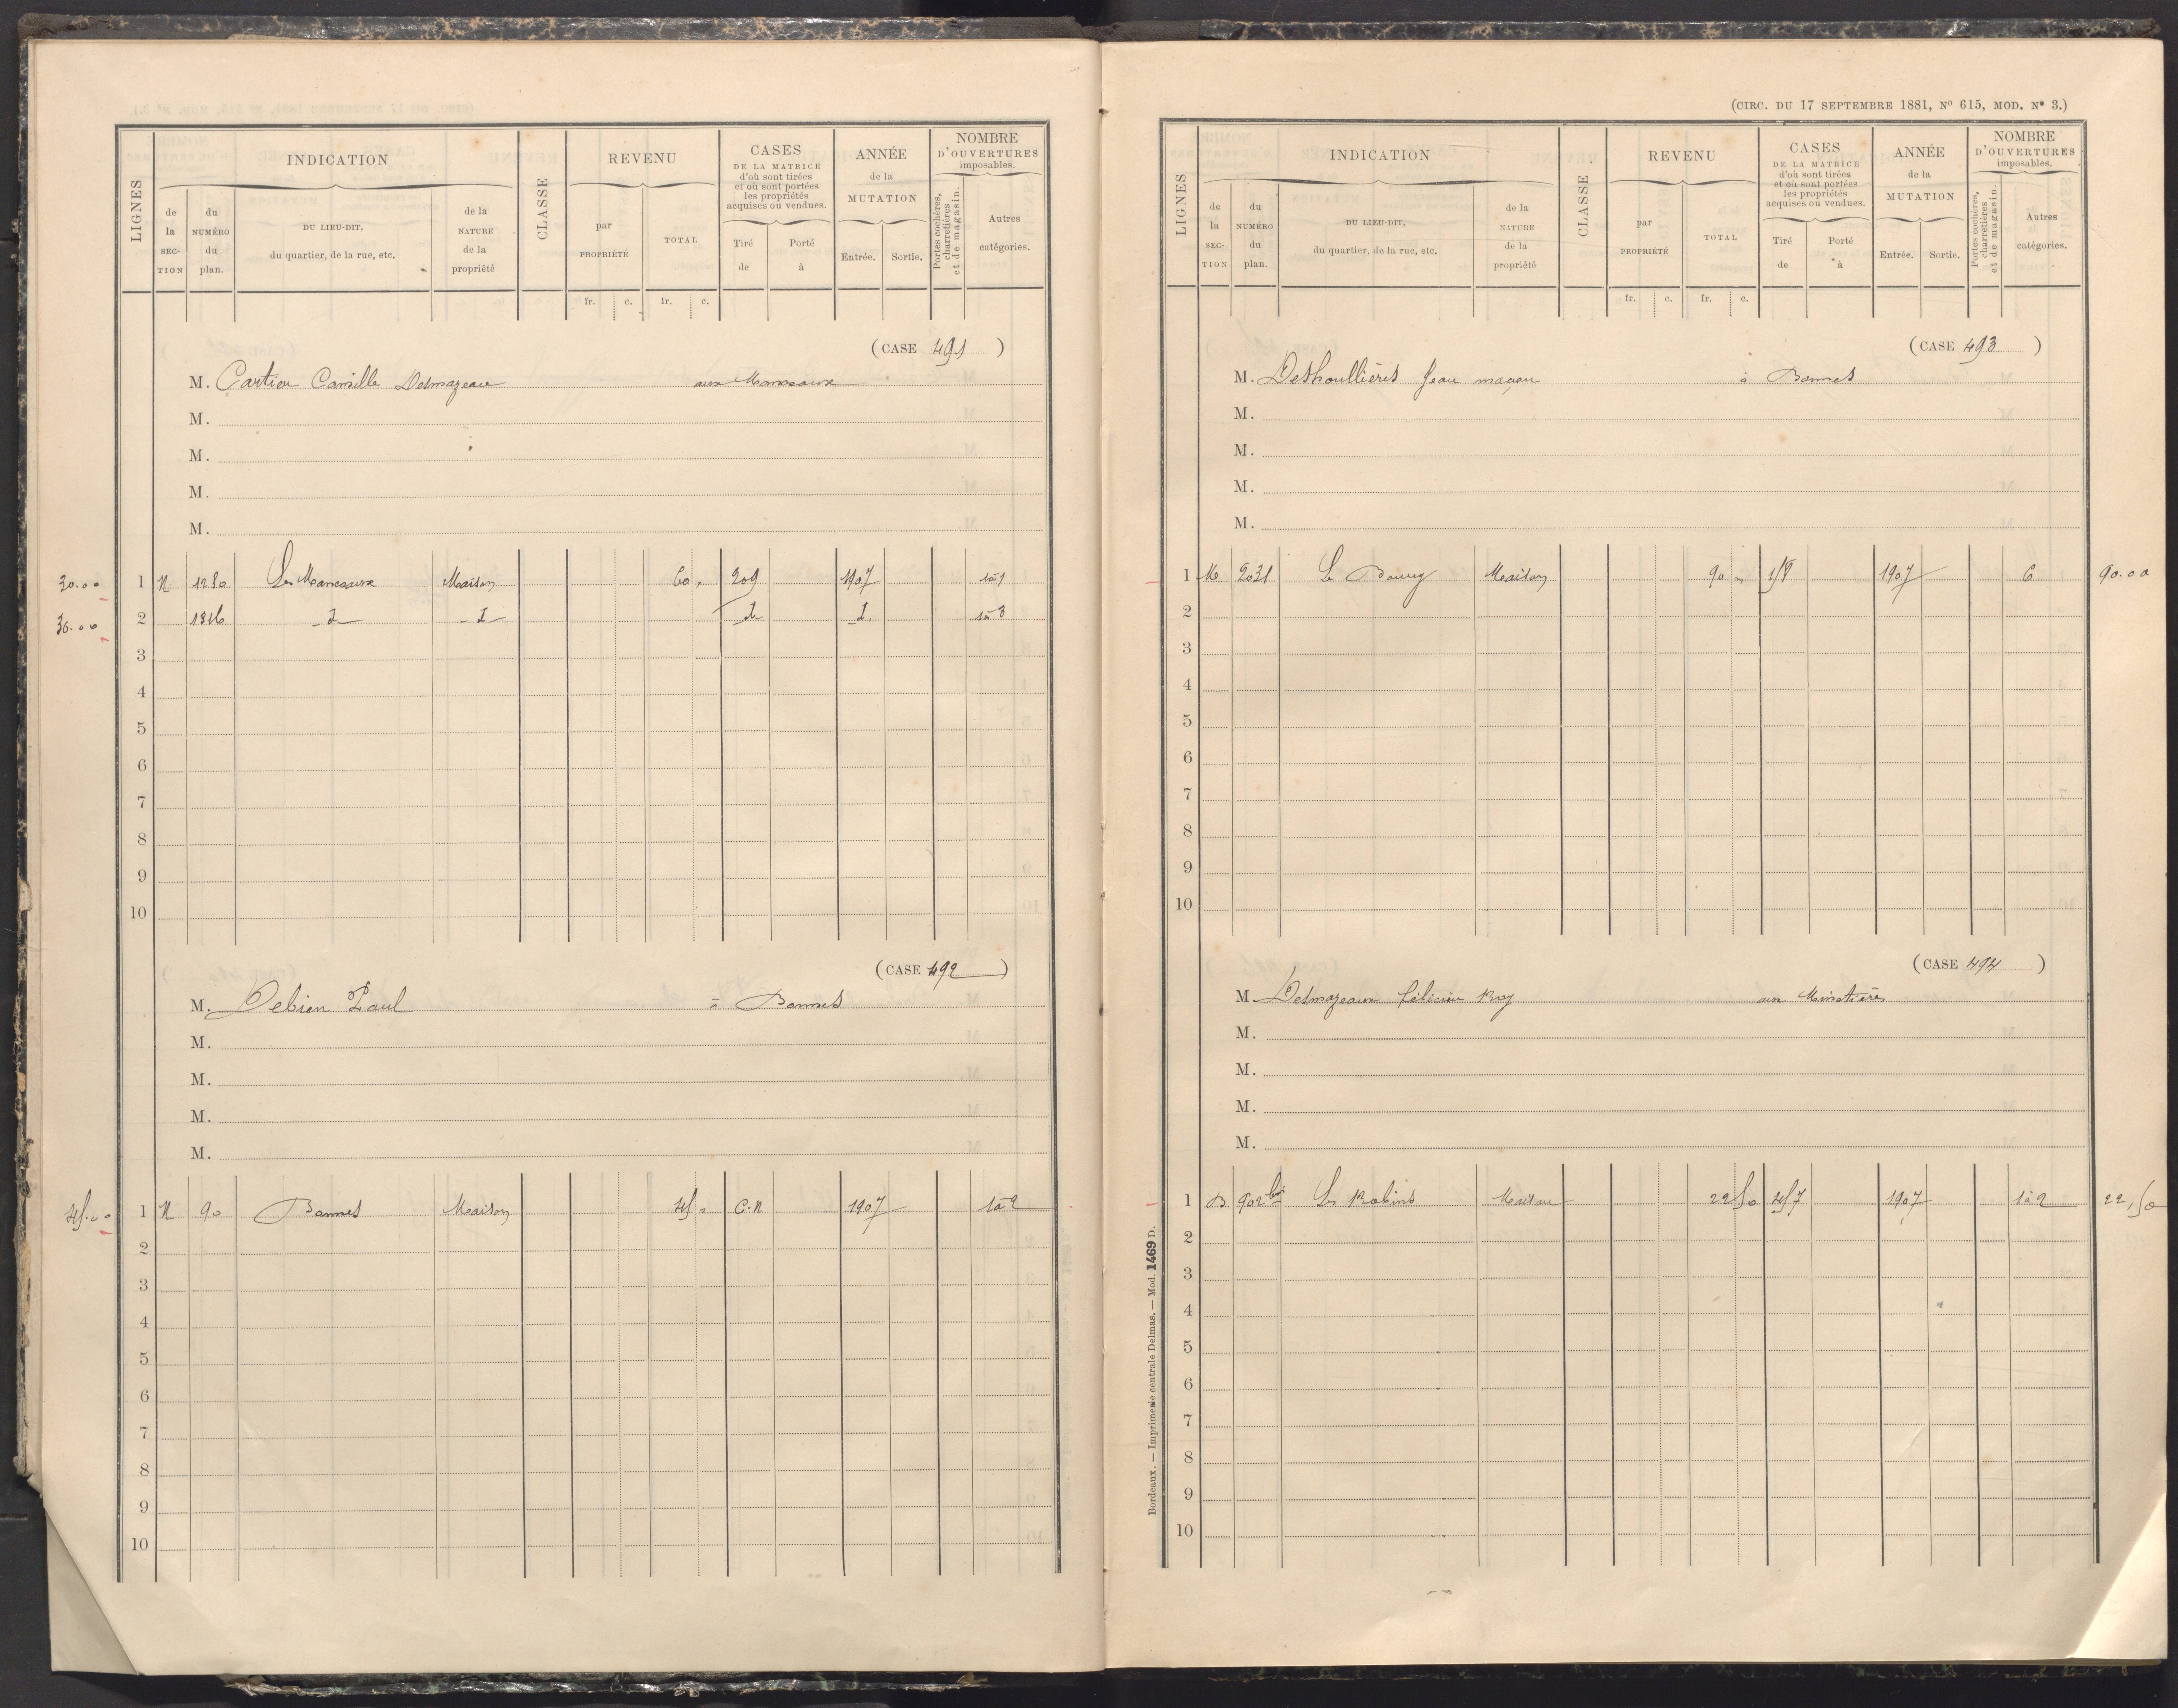 LIGNES
INDICATION
de la SECTION
du NUMÉRO du plan.
DU LIEU-DIT, du quartier, de la rue, etc.
de la NATURE de la propriété
CLASSE
REVENU
par PROPRIÉTÉ
TOTAL
CASES DE LA MATRICE d'où sont tirées et où sont portées les propriétés acquises ou vendues.
Tiré de
Porté à
ANNÉE de la MUTATION
Entrée.
Sortie.
NOMBRE D'OUVERTURES imposables.
Portes cochères, charretières et de magasin.
Autres catégories.
fr. c. fr. c.
(CASE 491)
M. Cartier Camille Delmazeau aux Manceaux
M.
M.
M.
M.
30.00 1 N 1280 Les Manceaux Maison 60 " 209 1907 1à1
30.00 2 1316 _d_ _d_ _d_ _d_ 1à3
3
4
5
6
7
8
9
10
(CASE 492)
M. Debien Paul à Bonnes
M.
M.
M.
M.
45.00 1 N 90 Bonnes Maison 45 " C.N 1907 1à2
2
3
4
5
6
7
8
9
10
(CIRC. DU 17 SEPTEMBRE 1881, N° 615, MOD. N° 3.)
LIGNES
INDICATION
de la SECTION
du NUMÉRO du plan.
DU LIEU-DIT, du quartier, de la rue, etc.
de la NATURE de la propriété
CLASSE
REVENU
par PROPRIÉTÉ
TOTAL
CASES DE LA MATRICE d'où sont tirées et où sont portées les propriétés acquises ou vendues.
Tiré de
Porté à
ANNÉE de la MUTATION
Entrée.
Sortie.
NOMBRE D'OUVERTURES imposables.
Portes cochères, charretières et de magasin.
Autres catégories.
fr. c. fr. c.
(CASE 493)
M. Deshoullières Jean maçon à Bonnes
M.
M.
M.
M.
1 2031 Le Bourg Maison 90 " 1907 6 90.00
2
3
4
5
6
7
8
9
10
(CASE 494)
M. Delmazeaux Félicien Roy aux
M.
M.
M.
M.
1 B 902 bis Les Robins Maison 22 50 457 1907 1à2 22,50
2
3
4
5
6
7
8
9
10
Bordeaux. — Imprimerie centrale Delmas. — Mod. 1469 D.